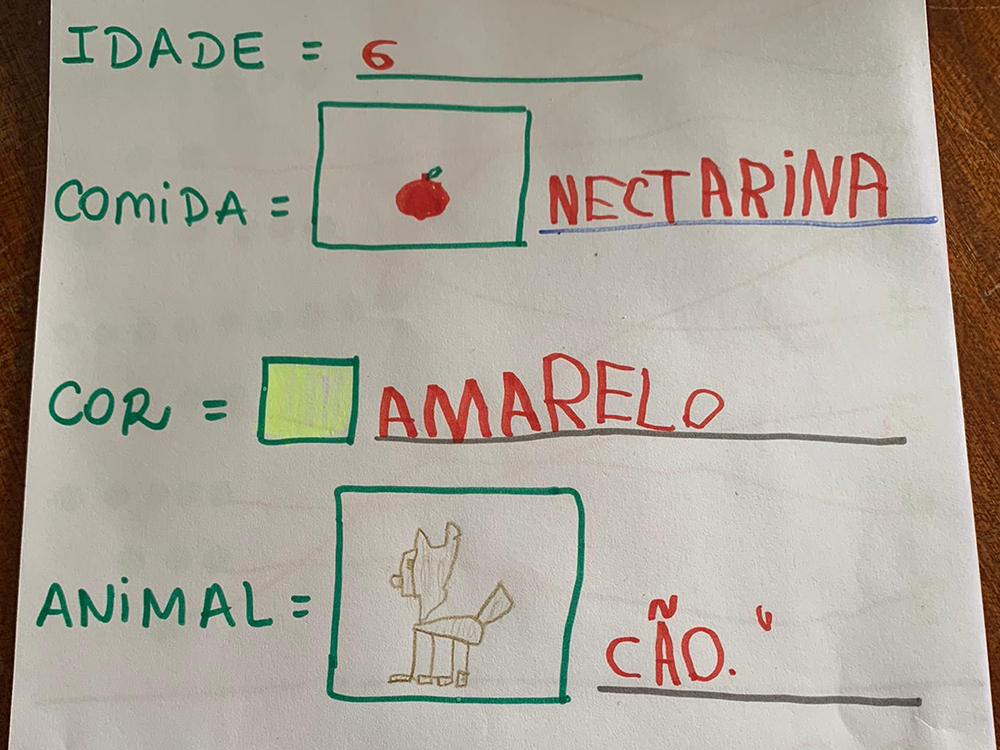 IDADE = 6
COMiDA = NECTARiNA
COR = AMARELO
ANiMAL = CÃO.